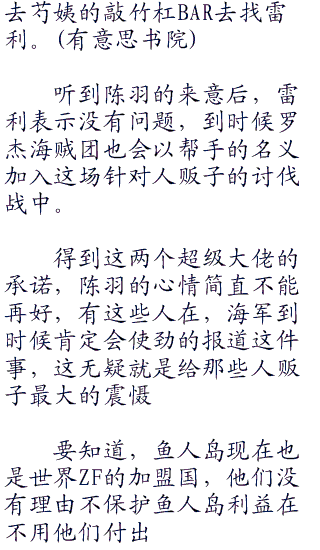 去芍姨的敲竹杠BAR去找雷
利。(有意思书院)
听到陈羽的来意后，雷
利表示没有问题，到时候罗
杰海贼团也会以帮手的名义
加入这场针对人贩子的讨伐
战中。
得到这两个超级大佬的
承诺，陈羽的心情简直不能
再好，有这些人在，海军到
时候肯定会使劲的报道这件
事，这无疑就是给那些人贩
子最大的震慑
要知道，鱼人岛现在也
是世界ZF的加盟国，他们没
有理由不保护鱼人岛利益在
不用他们付出